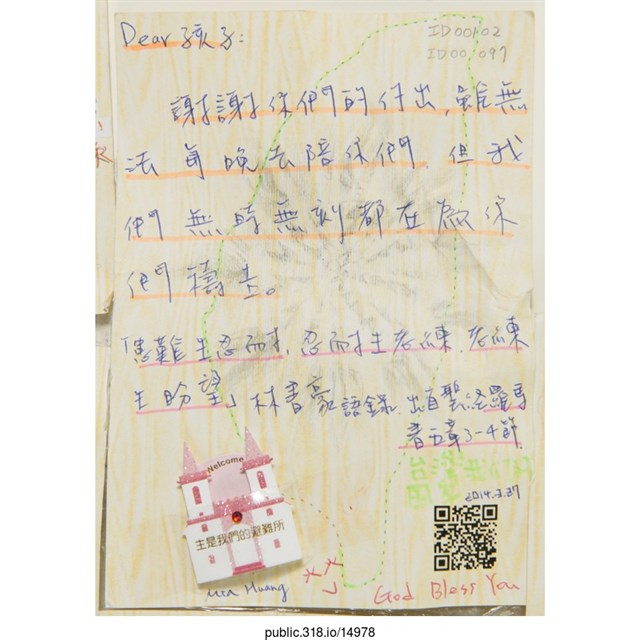 Dear 孩子:
ID00102
ID001097
謝謝你們的付出,雖無
法每晚去陪你們,但我
們無時無刻都在為你
們禱告。
「患難生忍耐,忍耐生老練,老練
生盼望」林書豪語錄,出自聖經羅馬
書五章3~4節
台灣
2014.3.27
Welcome
主是我們的避難所
Huang
God Bless You
public.318.io/14978